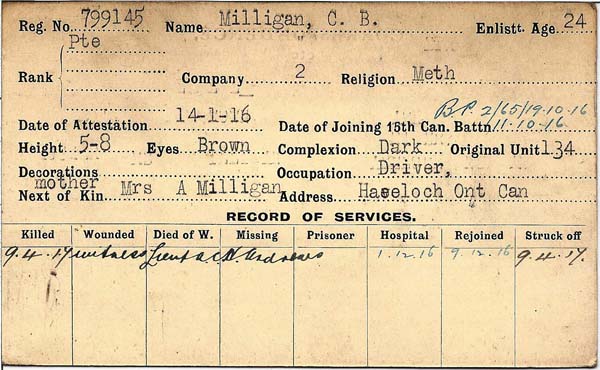 Reg. No. 799145 Name Milligan, C. B. Enlistt. Age 24
Pte
Rank Company 2 Religion Meth
B.P. 2/65/19.10.16
Date of Attestation 14-1-16 Date of Joining 15th Can. Battn 11.10.16
Height 5-8 Eyes Brown Complexion Dark Original Unit 134
Decorations Occupation Driver,
mother
Next of Kin Mrs A Milligan Address Haveloch Ont Can
RECORD OF SERVICES.
Killed Wounded Died of W. Missing Prisoner Hospital Rejoined Struck off
9.4.17 witness Lieut A.C.H. Andrews 1.12.16 9.12.16 9.4.17.